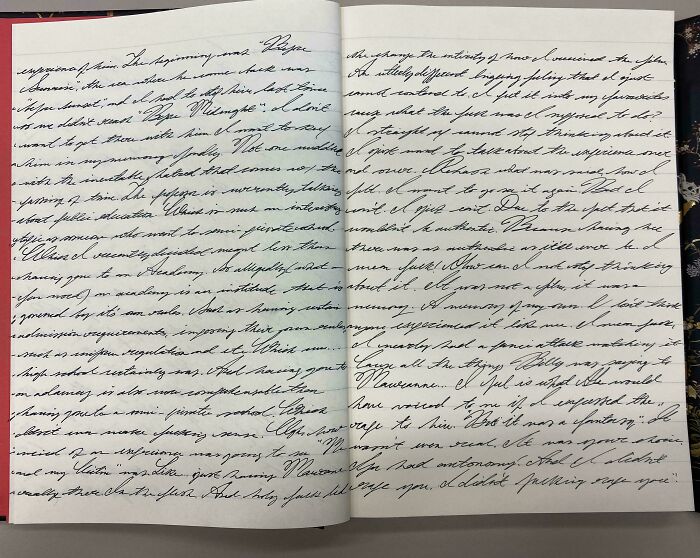 experience of him. The beginning was "Before
Sunrise", the era where he came back was
"before sunset" and I had to stop him last time
us one didn't reach "Before Midnight". I don't
want to get there with him I want to stay
him in my memory Not one
with the inevitable hatred that comes w/ the
passing of time. The is currently talking
about public education Which is such an interesting
topic as someone who went to semi private school
Which I recently decided meant less than
having gone to an Academy. As allegedly (what
you note) an academy is an institute that is
governed by its' own rules. Such as having certain
admission requirements, imposing their own rules
such as uniform regulation and etc Which um...
high school certainly was. And having gone to
an academy is also more comprehensible than
having gone to a semi private school. Which
doesn't even make fucking sense. Ugh, how
weird of an experience was going to see "Me
and my Victim" was like just having Maurane
actually there In the flesh. And holy fuck did
she change the entirety of how I received the film.
An utterly different lingering feeling that I just
cannot contend to I put it into my favorites
cause what the fuck was I supposed to do?
I straight up cannot stop thinking about it
I just want to talk about the experience over
and over. Rehash what was said, how I
felt. I want to go see it again But I
can't. I just can't Due to the fact that it
wouldn't be authentic. Because having her
there was as authentic as it'll ever be. I
mean fuck! How can I not stop thinking
about it. It was not a film, it was a
memory. A memory of my own. I don't think
anyone experienced it like me. I mean fuck,
I nearly had a panic attack watching it
Cause all the things Billy was saying to
Maurane... I feel is what he would
have voiced to me if I confessed the..
rape to him. "But it was a fantasy". It
wasn't even real. It was your choice,
You had autonomy. And I didn't
rape you. I didn't fucking rape you".